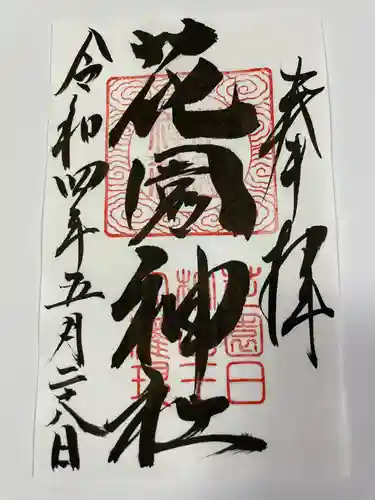 奉拝
花園神社
令和四年五月二十八日